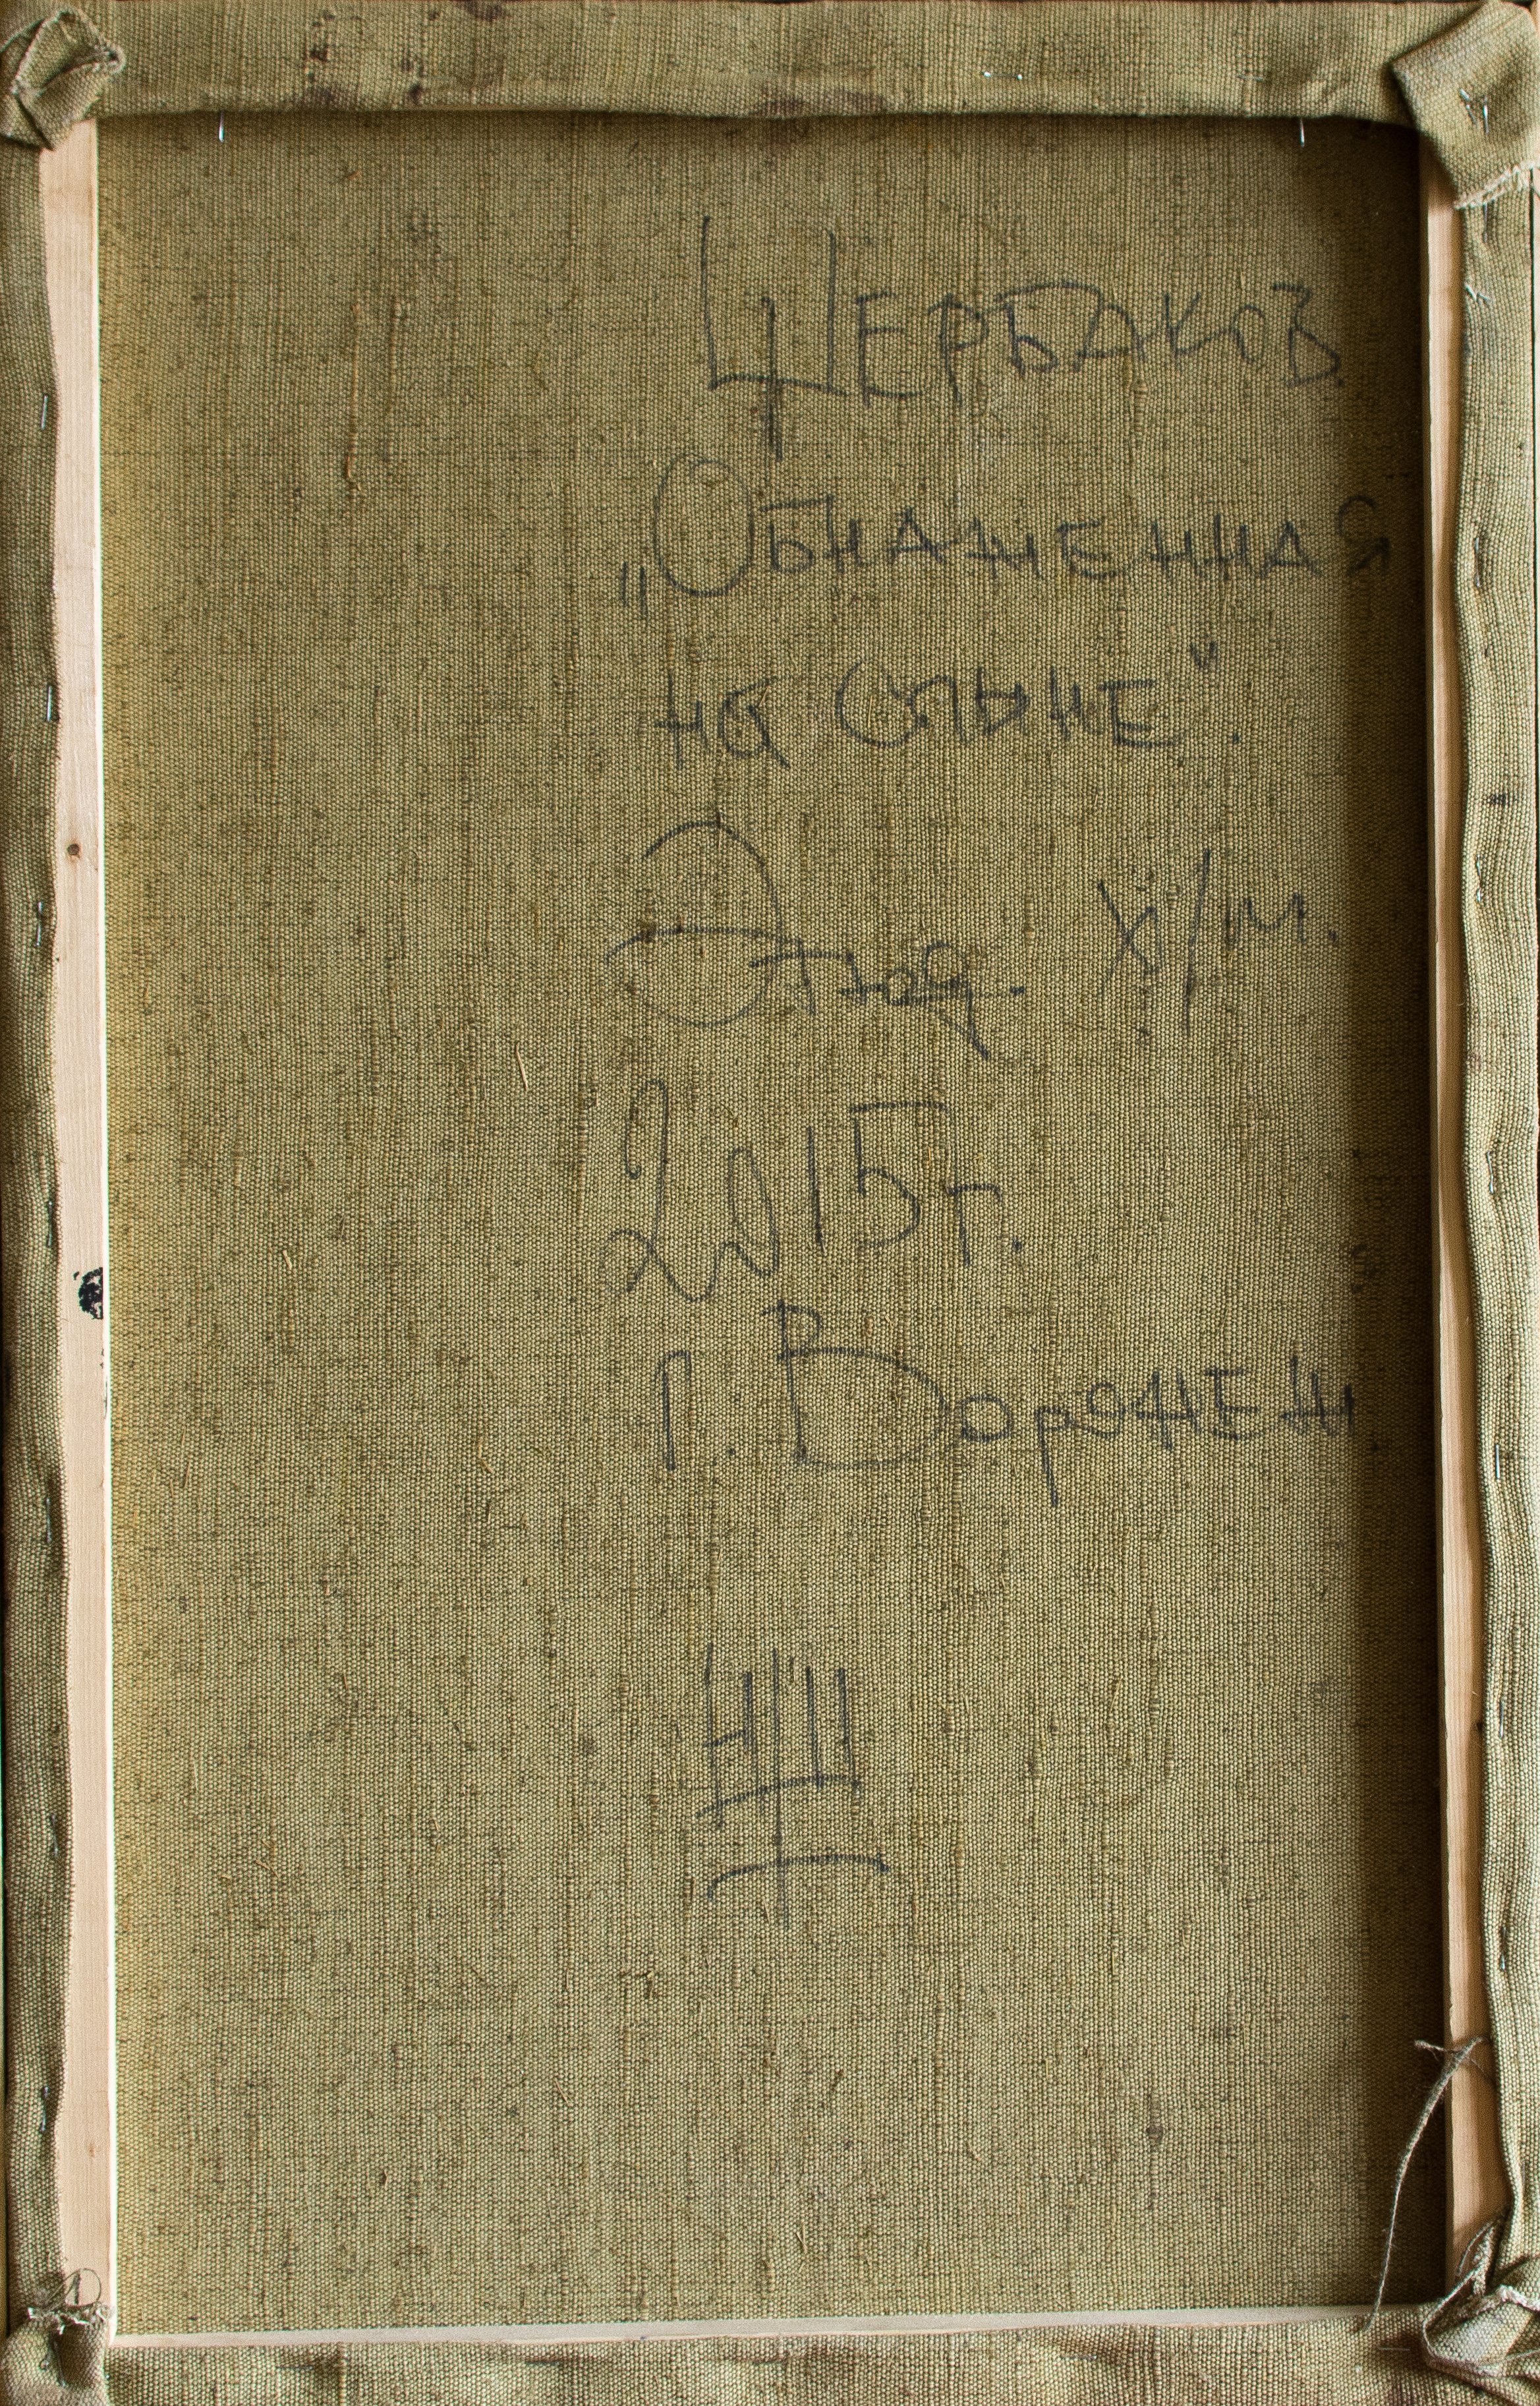 ЩЕРБАКОВ.
„ОБНАЖЕННАЯ
на СПИНЕ".
Этюд. х/м.
2015г.
г. ВоронЕЖ